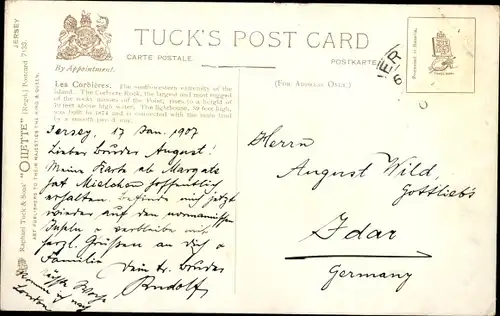 TUCK'S POST CARD
CARTE POSTALE
POSTKARTE
By Appointment.
(FOR ADDRESS ONLY.)
JERSEY
Raphael Tuck & Sons' "OILETTE" [Regd.] Postcard 7133.
ART PUBLISHERS TO THEIR MAJESTIES THE KING & QUEEN.
Les Corbières. The south-western extremity of the
island. The Corbière Rock, the largest and most rugged
of the rocky masses off the Point, rises to a height of
feet above high water. The lighthouse, 50 feet high,
was built in 1874 and is connected with the main land
by a smooth paved way.
Jersey, 17 Jan. 1907
Lieber Bruder August!
Meine Karte ab Margate
hat Mielchen hoffentlich
erhalten. Befinde mich jetzt
wieder auf den normannischen
Inseln & verbleibe mit
herzl. Grüßen an dich &
Familie
Dein tr. Bruder
Rudolf
Nächste Woche
komme ich nach
London
Herrn
August Wild,
Gottlieb's
Idar
Germany